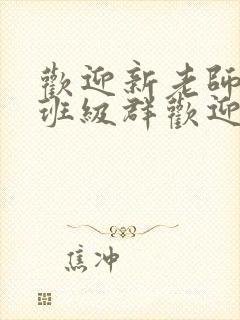 歡迎新老師
班級群歡迎
焦冲